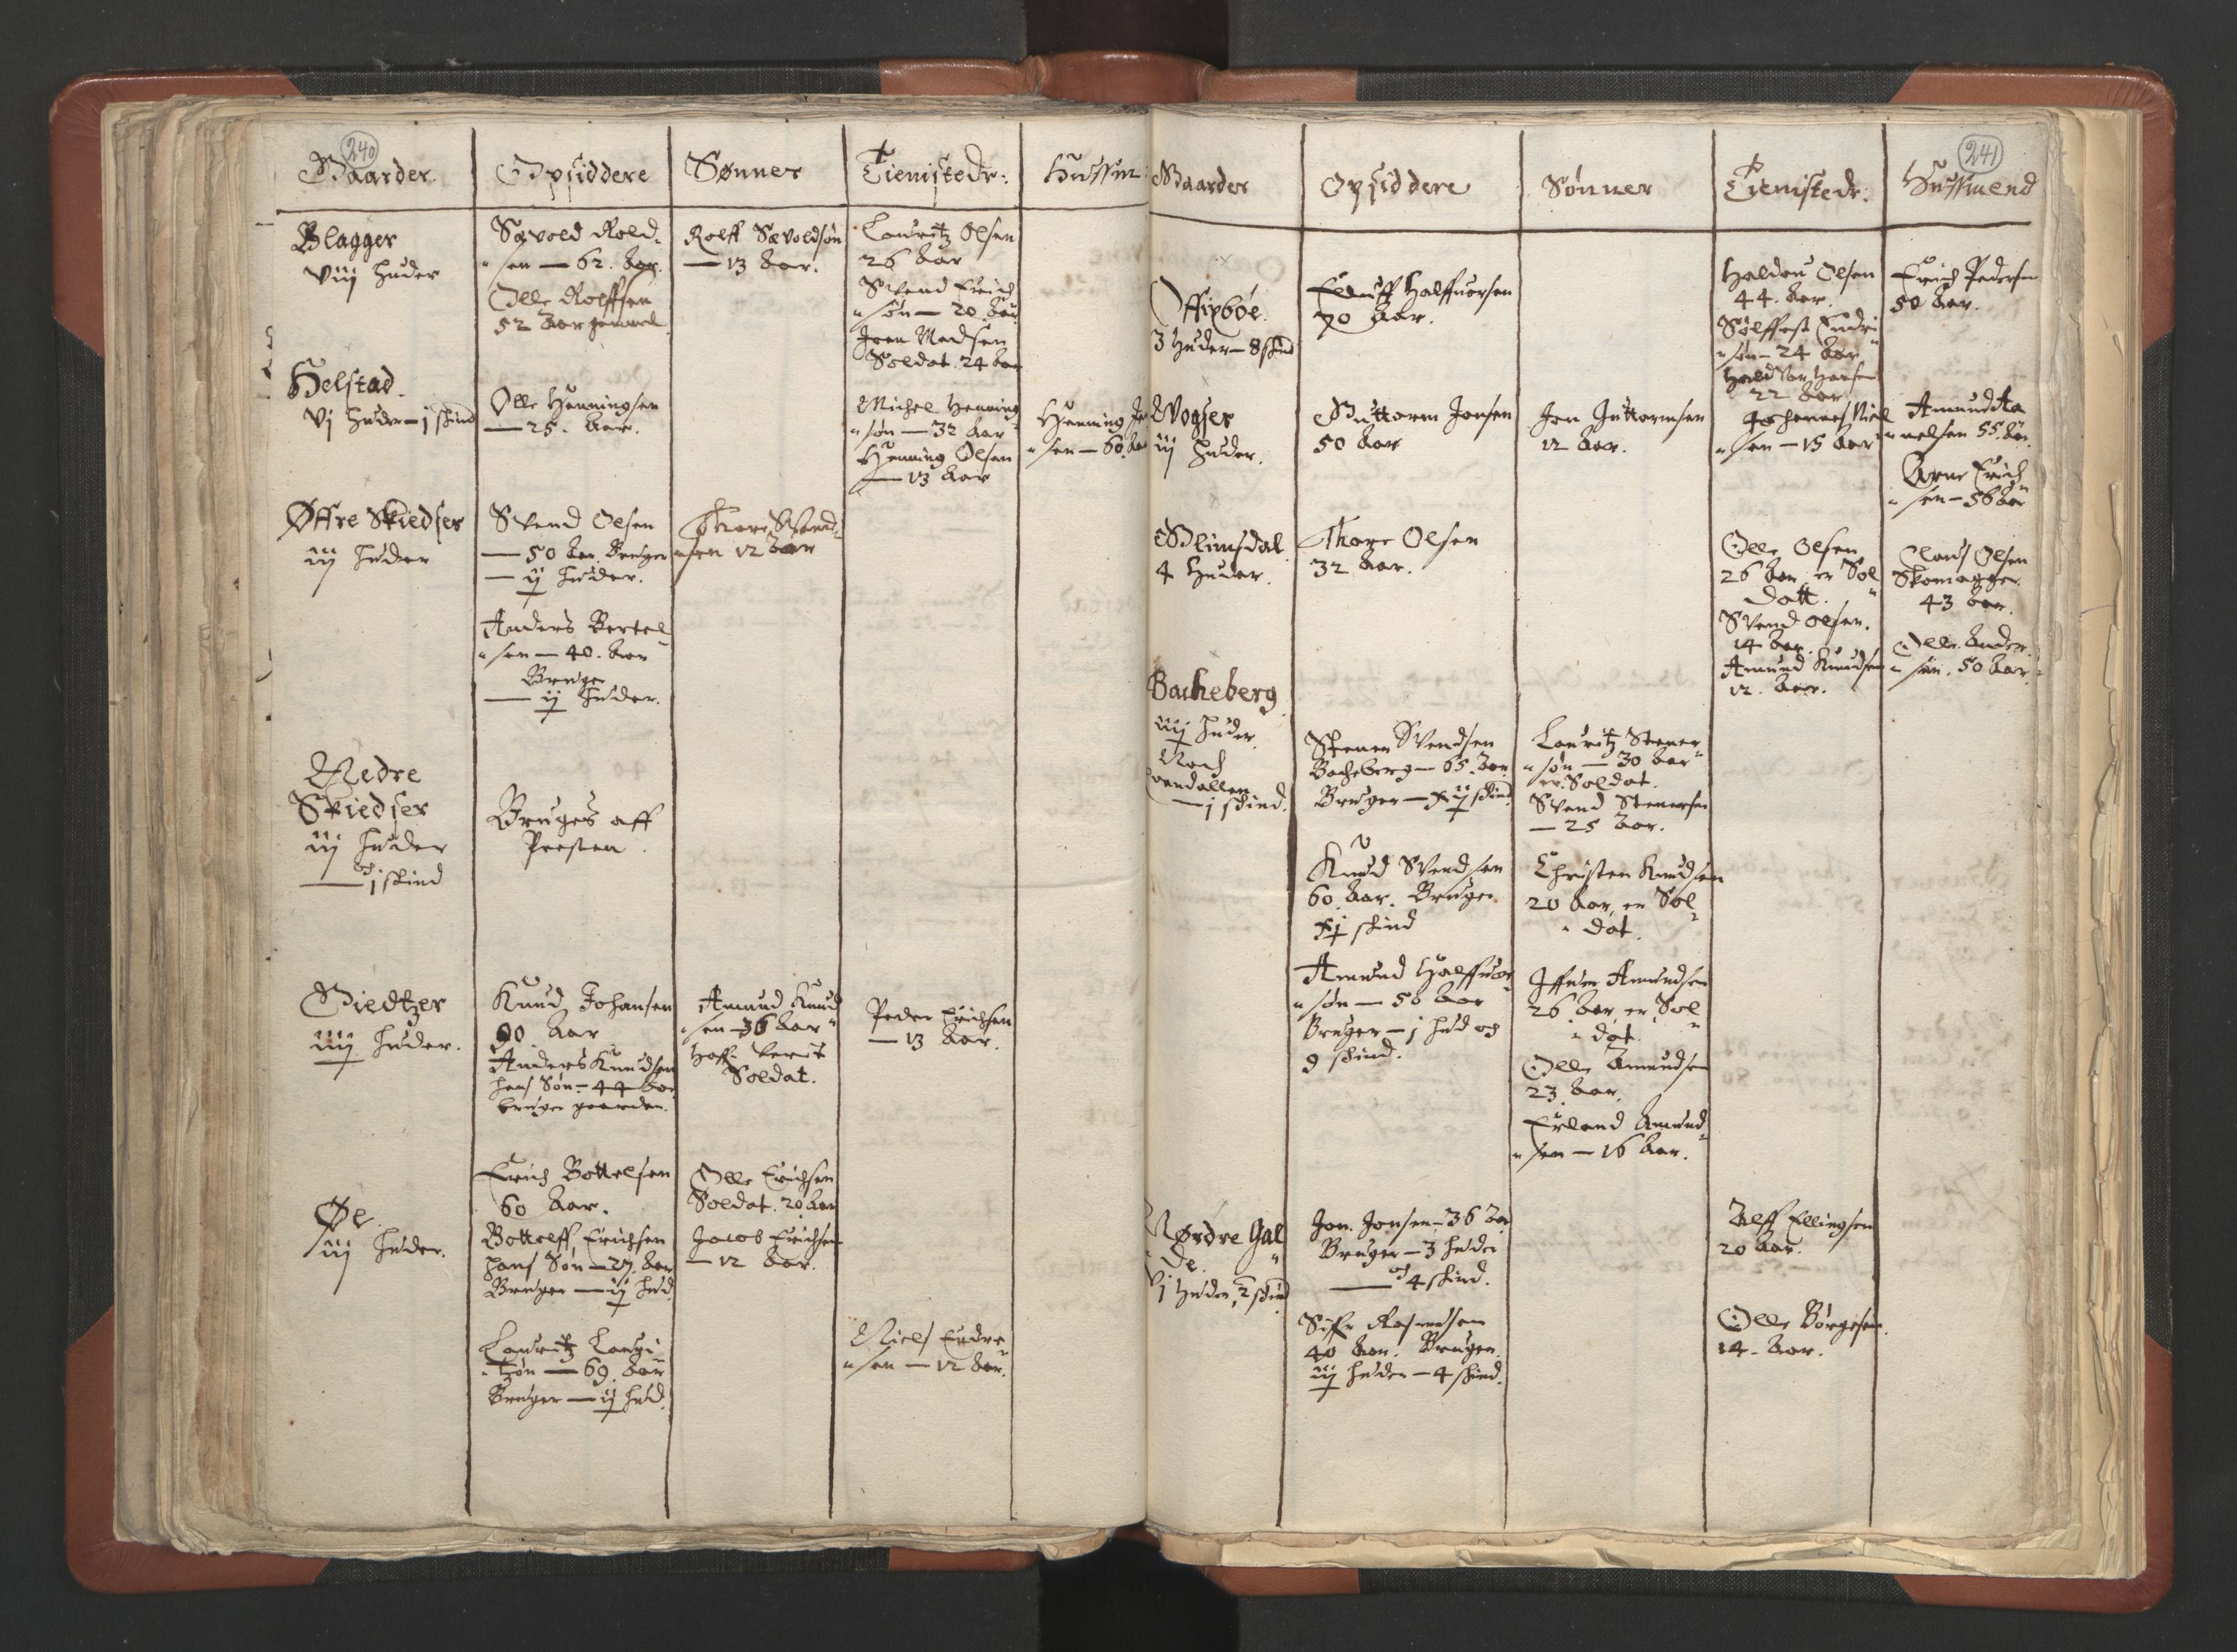 240
Gaarder
Opsiddere
Sønner
Tienistedr:
Hussm:
Blagger
viij huder
Sævold Rold
sen — 62. Aar.
Olle Rolffsen
52 Aar gammel
Rolff Sævoldsøn
— 13 Aar.
Lauritz Olsen
26 Aar
Svend Erich
søn — 20 Aar
Joen Madsen
Soldat. 24 Aar
Helstad.
vj huder — j skind
Olle Henningsen
— 25. Aar.
Michel Henning
søn — 32 Aar
Henning Olsen
— 13 Aar
Henning
sen — 60. Aar
Øffre Skiedser
iij huder
Svend Olsen
— 50 Aar. Bruger
— ij huder.
Anders Bertel
sen — 40. Aar
Bruger
— ij huder.
Thore Svend
sen 12 Aar
Nedre
Skiedser
iij huder
— och j skind
Bruges aff
Presten.
Giedtzer
iiij huder.
Knud Johansen
90 Aar
Anders Knudsen
hans Søn — 44 Aar
bruger gaarden.
Amund Knud
sen — 36 Aar
haffr verit
Soldat.
Peder Erichsen
— 13 Aar.
Øe
iiij huder.
Erich Bottelsen
60 Aar.
Bottolff Erichsen
hans Søn — 27. Aar
Bruger — ij hud.
Lauritz Laugi
tzøn — 69. Aar
Bruger — ij hud.
Olle Erichsen
Soldat. 20 Aar
Jacob Erichsen
— 12 Aar.
Niels Endre
sen — 12 Aar.
241
Gaarder
Opsiddere
Sønner
Tienistedr:
Hussmend
Offigbøe.
3 Huder — 8 skind
Halffuorsen
70 Aar.
Haldou Olsen
44. Aar.
Sølffest Endri
søn — 24 Aar
Haldvor Hansen
22 Aar
Erich Pedersen
50 Aar.
Wogser
iij huder.
Guttorm Jonsen
50 Aar
Jon Guttormsen
12 Aar.
Johannes Niel
sen — 15 Aar
Amund Aa
nelsen 55. Aar
Arne Erich
sen — 56 Aar
Glimsdal
4 Huder.
Thore Olsen
32 Aar.
Olle Olsen
26 Aar er Sol
datt.
Svend Olsen.
14 Aar.
Amund Knudsen
12. Aar.
Claus Olsen
Skomagger.
43 Aar.
Olle Ander
søn. 50 Aar.
Bacheberg
iiij huder.
Noch
— j skind.
Stener Svendsen
Bacheberg — 65. Aar
Bruger — xij skind
Knud Svendsen
60. Aar. Bruger
xj skind
Amund Halffuor
søn — 50 Aar
Bruger — j hud och
9 skind.
Lauritz Stener
søn — 30 Aar
er Soldat.
Svend Stenersen
— 25 Aar.
Christen Knudsen
20 Aar, er Sol
dat.
Iffuer Amundsen
26 Aar, er Sol
dat.
Olle Amundsen
23. Aar.
Erland Amund
sen — 16 Aar.
Nørdre Gal
de.
vj huder, 2 skind
Jon. Jonsen — 36 Aar
Bruger — 3 huder
— och 4 skind.
Rasmusen
40 Aar. Bruger
iij huder — 4 skind.
Alff Ellingsen
20 Aar.
Olle Børgesen.
14. Aar.